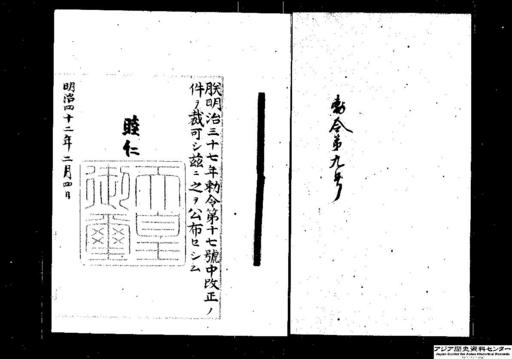 勅令第九号
朕明治三十七年勅令第十七號中改正ノ
件ヲ裁可シ茲ニ之ヲ公布セシム
睦仁
天皇
御璽
明治四十二年二月四日
アジア歴史資料センター
Japan Center for Asian Historical Records